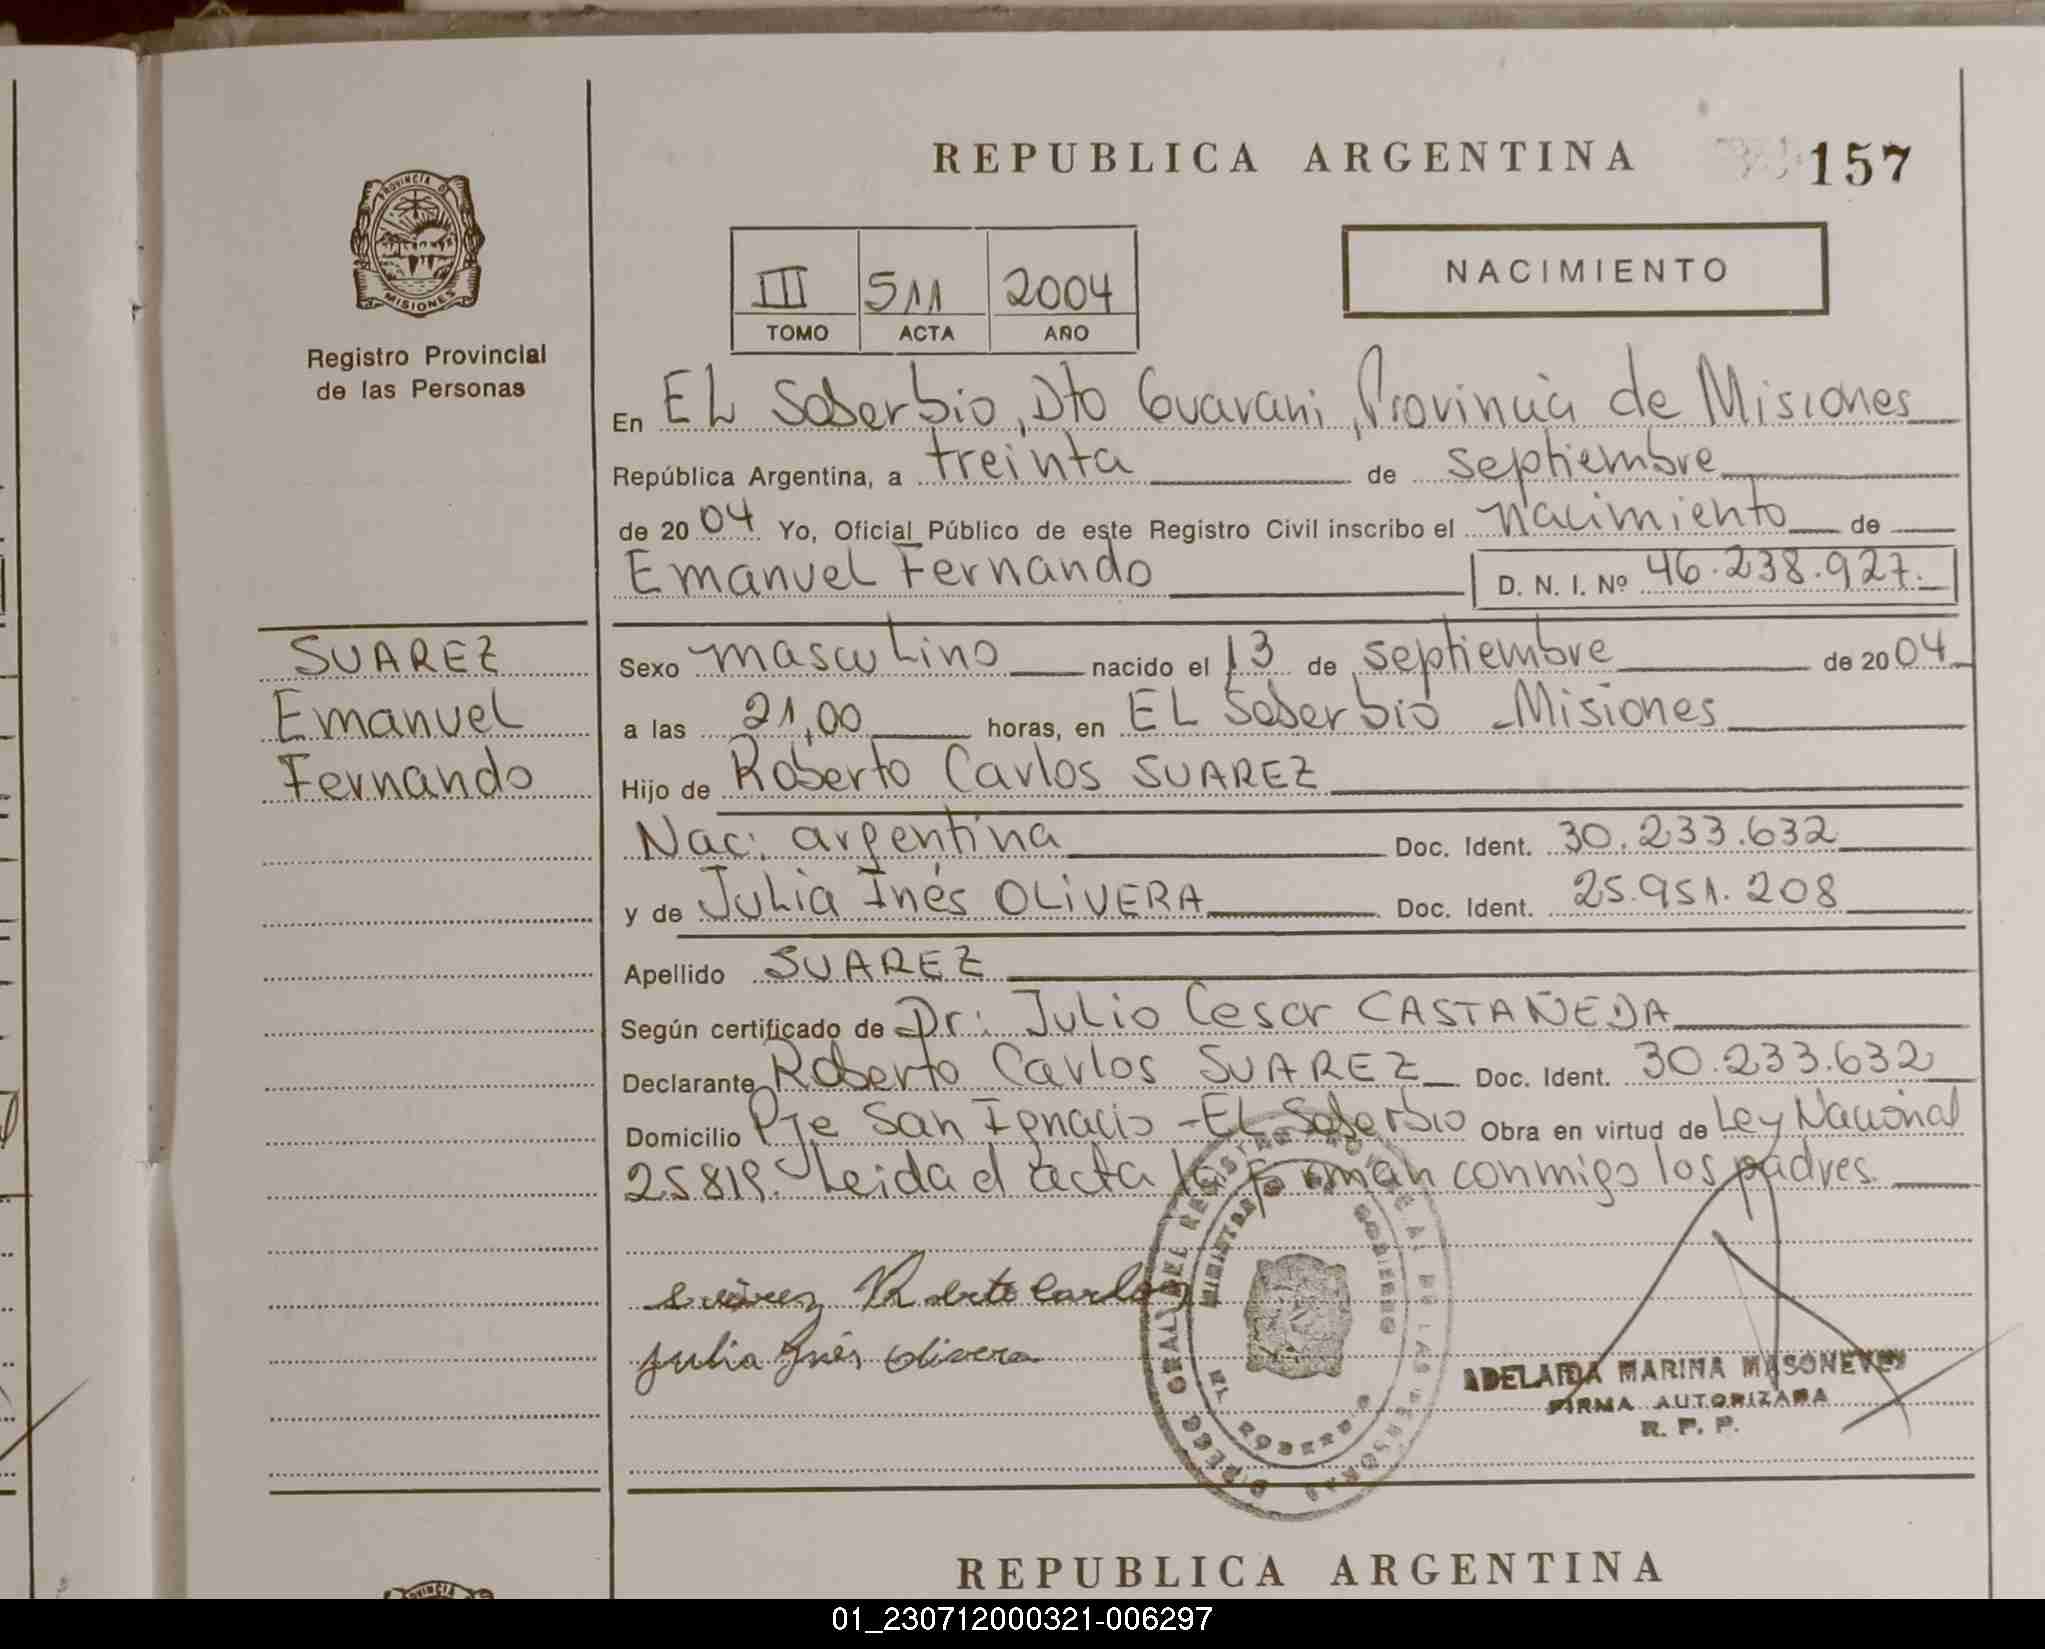 REPUBLICA ARGENTINA 157
PROVINCIA DE
MISIONES
Registro Provincial
de las Personas
NACIMIENTO
III 511 2004
TOMO ACTA AÑO
En EL Soberbio, Dto Guarani, Provincia de Misiones
República Argentina, a treinta de septiembre
de 2004 Yo, Oficial Público de este Registro Civil inscribo el nacimiento de
Emanuel Fernando D. N. I. Nº 46.238.927.
SUAREZ
Emanuel
Fernando
Sexo masculino nacido el 13 de septiembre de 2004
a las 21,00 horas, en EL Soberbio - Misiones
Hijo de Roberto Carlos SUAREZ
Nac: argentina Doc. Ident. 30.233.632
y de Julia Inés OLIVERA Doc. Ident. 25.951.208
Apellido SUAREZ
Según certificado de Dr: Julio Cesar CASTAÑEDA
Declarante Roberto Carlos SUAREZ Doc. Ident. 30.233.632
Domicilio Pje San Ignacio - EL Soberbio Obra en virtud de Ley Nacional
25819. Leida el acta la firman conmigo los padres.
Suarez Roberto Carlos
Julia Inés Olivera
ADELAIDA MARINA
FIRMA AUTORIZADA
R. P. P.
REPUBLICA ARGENTINA
01_230712000321-006297